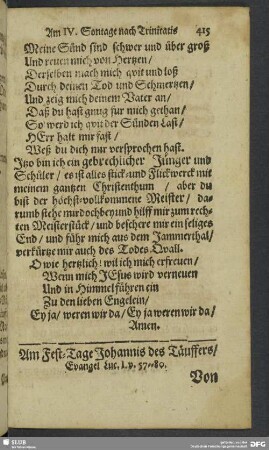 Am IV. Sontage nach Trinitatis 415
Meine Sünd sind schwer und über groß
Und reuen mich von Hertzen/
Derselben mach mich qvit und loß
Durch deinen Tod und Schmertzen/
Und zeig mich deinem Vater an/
Daß du hast gnug für mich gethan/
So werd ich qvit der Sünden Last/
HErr halt mir fast/
Weß du dich mir versprochen hast.
Itzo bin ich ein gebrechlicher Jünger und
Schüler/ es ist alles stück- und Flickwerck mit
meinem gantzen Christenthum / aber du
bist der höchst-vollkommene Meister/ da-
rumb stehe mir doch bey und hilff mir zum rech-
ten Meisterstück/ und beschere mir ein seliges
End/ und führ mich aus dem Jammerthal/
verkürtze mir auch des Todes Qvall.
O wie hertzlich wil ich mich erfreuen/
Wenn mich JEsus wird verneuen
Und in Himmel führen ein
Zu den lieben Engelein/
Ey ja/ weren wir da/ Ey ja weren wir da/
Amen.
Am Fest-Tage Johannis des Täuffers/
Evangel Luc. I. v. 57--80.
Von
SLUB